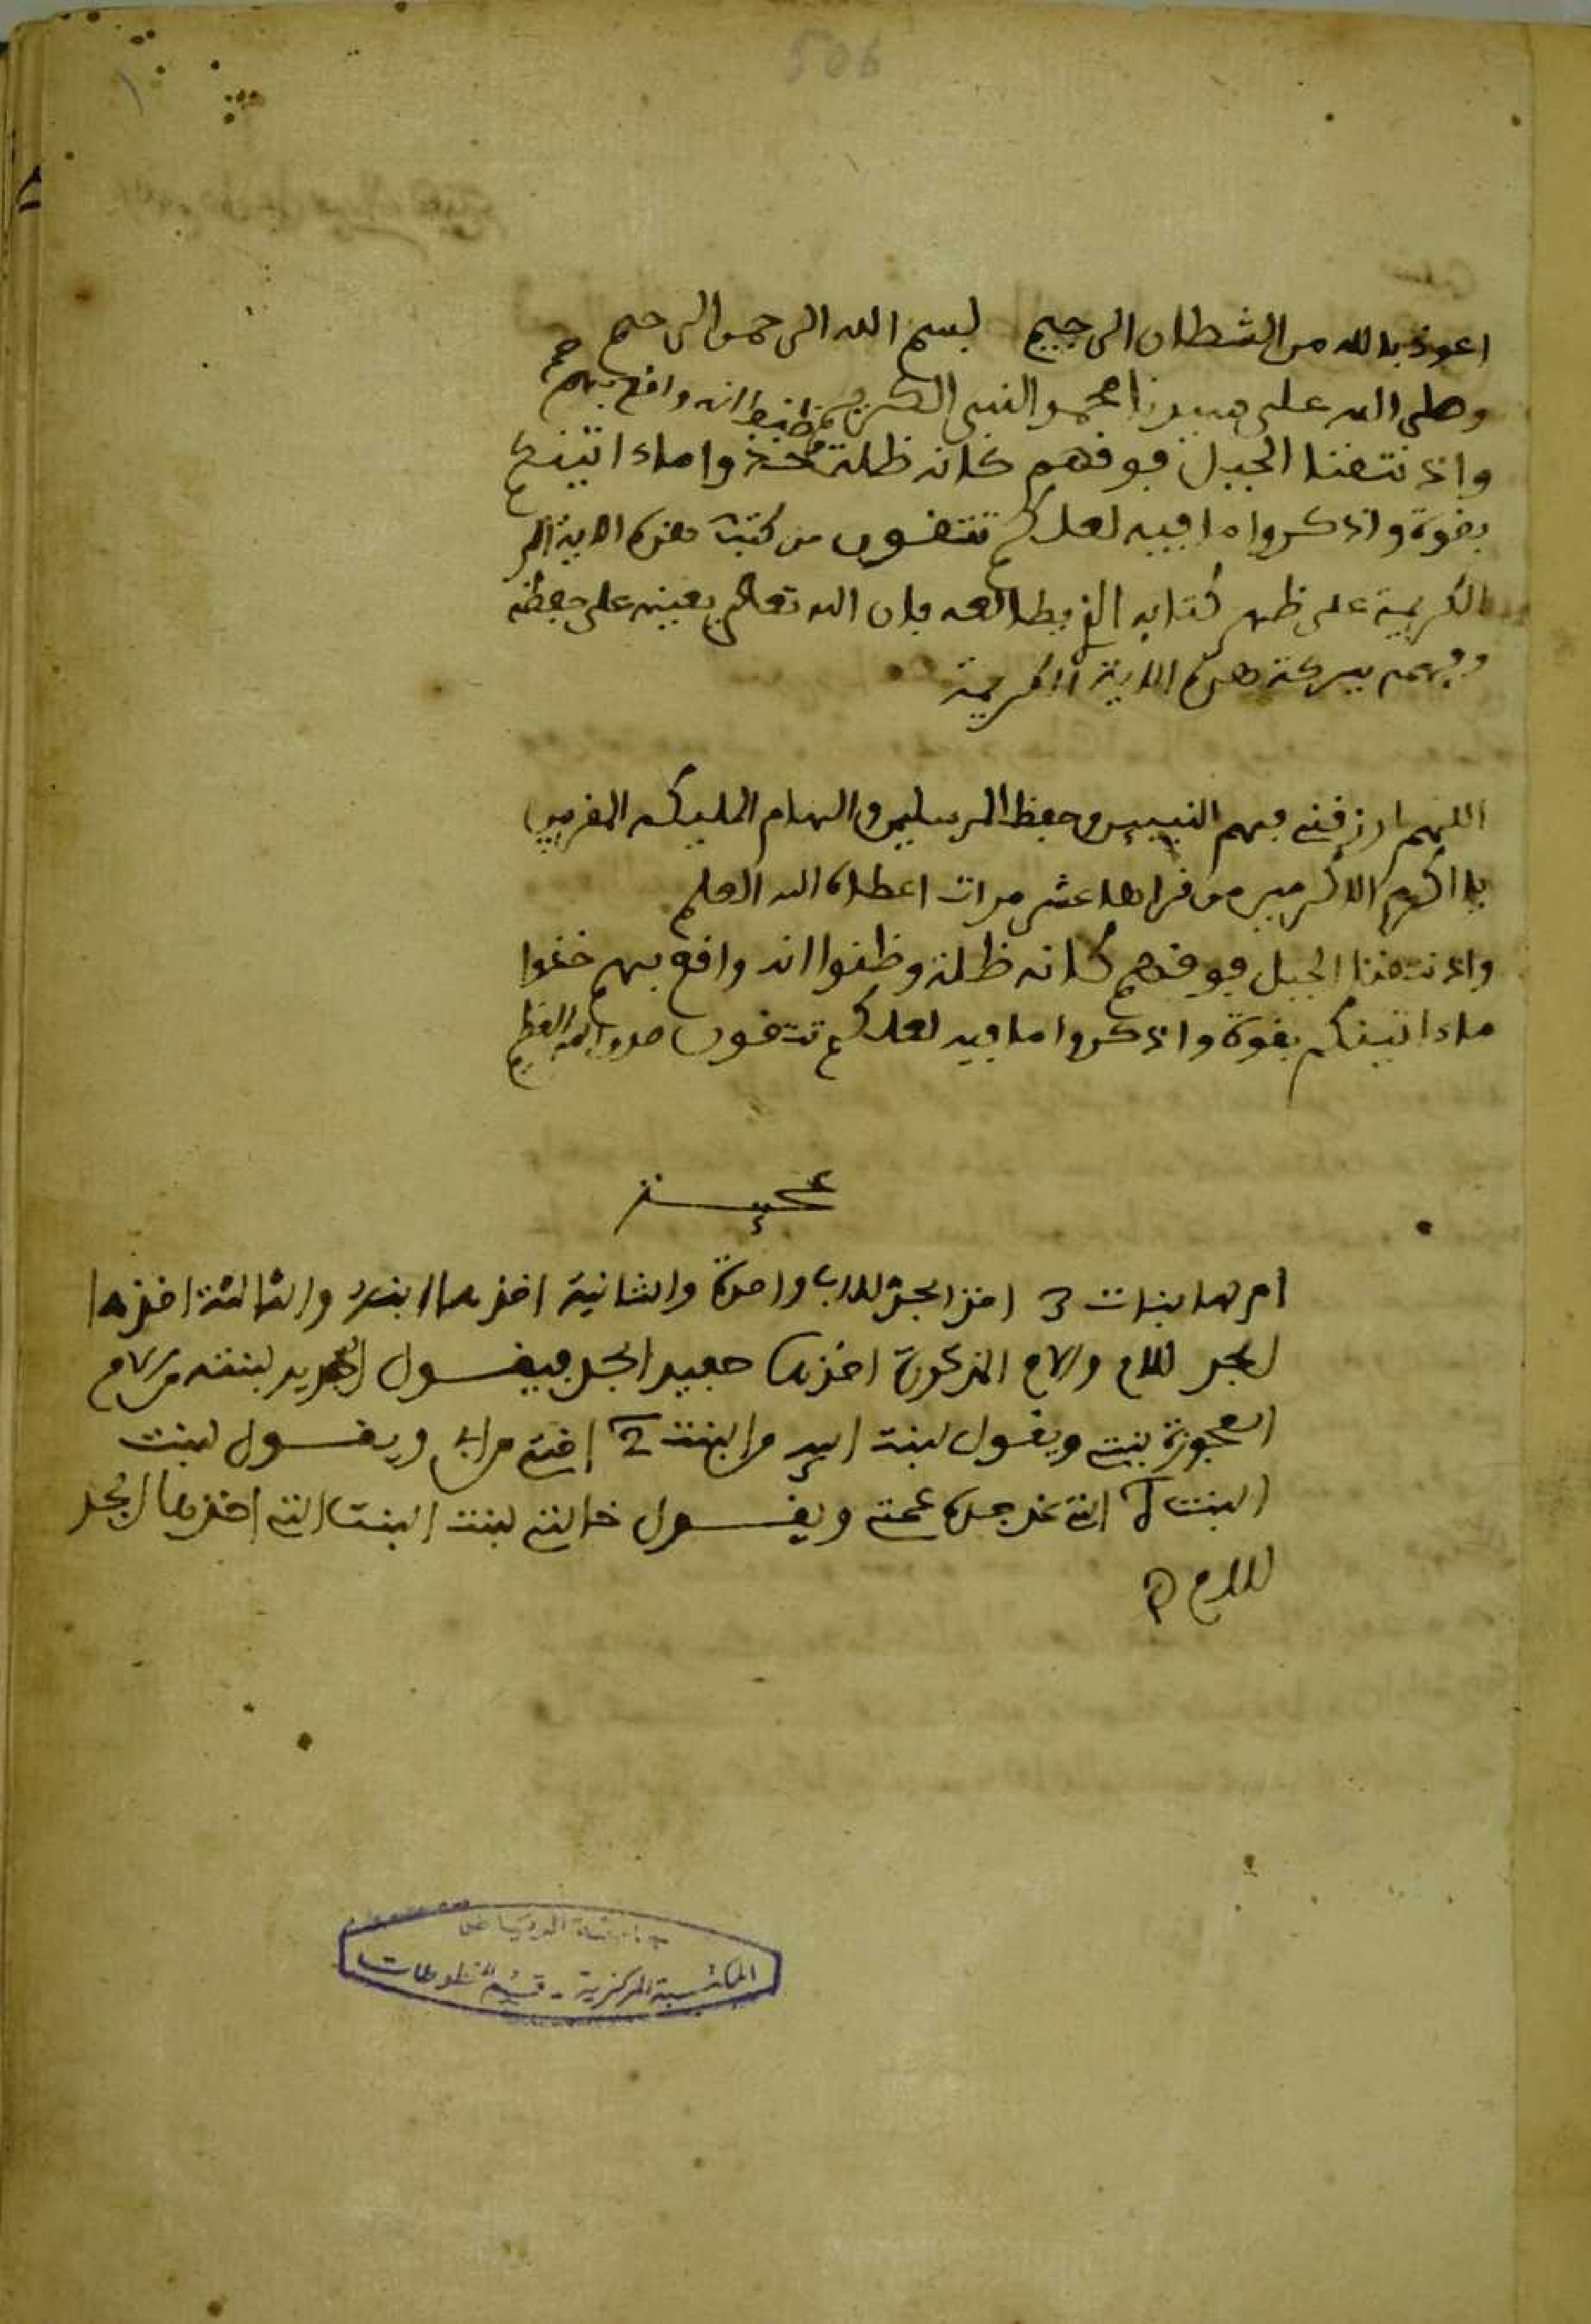 506
اعوذ بالله من الشطان الرجيم بسم الله الرحمن الرحيم
وصلى الله على سيدنا محمد النبي الكريم
وظنوا انه واقع بهم
واذ نتقنا الجبل فوقهم كانه ظلة خذوا ماء اتينكم
بقوة واذكروا ما فيه لعلكم تتقون من كتب هذه الاية
الكريمة على ظهر كتابه الذي يطالعه فان الله تعالى يعينه على حفظه
وفهمه ببركة هذه الاية الكريمة
اللهم ارزقني فهم النبيين وحفظ المرسلين والهام المليكة المقربين
يا اكرم الاكرمين من قراها عشر مرات اعطاه الله العلم
واذ نتقنا الجبل فوقهم كانه ظلة وظنوا انه واقع بهم خذوا
ماء اتينكم بقوة واذكروا ما فيه لعلكم تتقون صدق الله العظيم
عجيبة
ام لها بنات 3 اخذ الجد للاب واحدة والثانية اخذها ابنه والثالثة اخذها
الجد للام والام المذكورة اخذها حفيد الجد فيقول لبنته من الام
العجوزة بنتي ويقول لبنت ابيه من البنت 2 اختي من اب ويقول لبنت
البنت التي عند جده عمتي ويقول خالتي لبنت البنت التي اخذها الجد
للام
جامعة الرياض
المكتبة المركزية - قسم المخطوطات